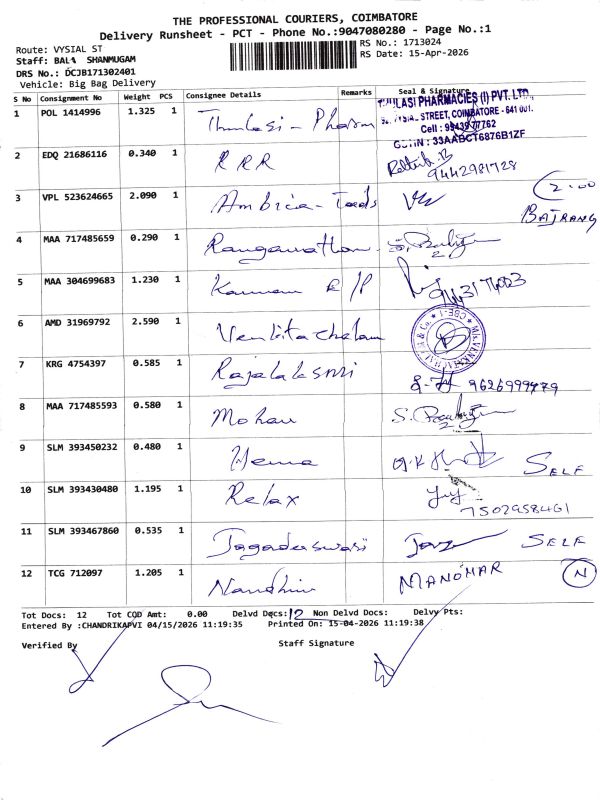 THE PROFESSIONAL COURIERS, COIMBATORE
Delivery Runsheet - PCT - Phone No.:9047080280 - Page No.:1
Route: VYSIAL ST
RS No.: 1713024
Staff: BALA SHANMUGAM
RS Date: 15-Apr-2026
DRS No.: DCJB171302401
Vehicle: Big Bag Delivery
S No Consignment No Weight PCS Consignee Details Remarks Seal & Signature
1 POL 1414996 1.325 1 Thulasi - Pharm
THULASI PHARMACIES (I) PVT. LTD.
STREET, COIMBATORE - 641 001.
Cell : 99439 77762
GSTIN : 33AABCT6876B1ZF
2 EDQ 21686116 0.340 1 RRR 9442981728
3 VPL 523624665 2.090 1 Ambica - Toods 2.00
BAJRANG
4 MAA 717485659 0.290 1 Ranganathan
5 MAA 304699683 1.230 1 Kannan R/P
6 AMD 31969792 2.590 1 Venkitachalam
7 KRG 4754397 0.585 1 Rajalakshmi 9626999479
8 MAA 717485593 0.580 1 Mohan
9 SLM 393450232 0.480 1 Hema SELF
10 SLM 393430480 1.195 1 Relax 7502958461
11 SLM 393467860 0.535 1 Jagadeeswari SELF
12 TCG 712097 1.205 1 Nandhini MANOMAR N
Tot Docs: 12 Tot COD Amt: 0.00 Delvd Docs: 12 Non Delvd Docs: Delvy Pts:
Entered By :CHANDRIKAPVI 04/15/2026 11:19:35 Printed On: 15-04-2026 11:19:38
Verified By Staff Signature